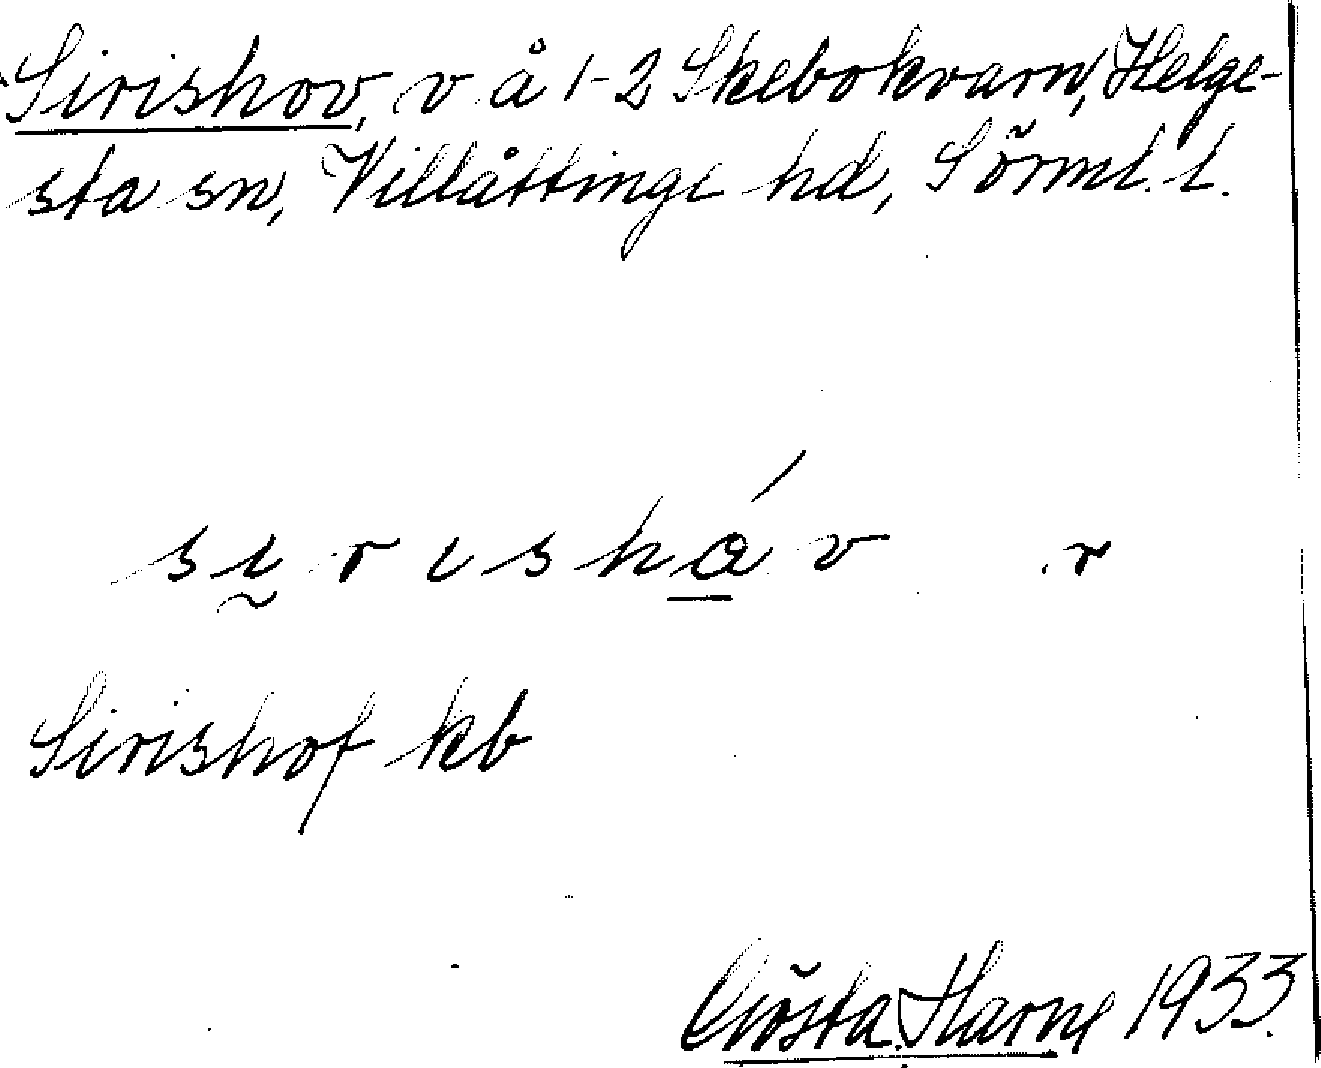 Sirishov, v å 1-2 Skebokvarn, Helge-
sta sn, Villåttinge hd, Sörml. l.
sirishåv r
Sirishof kb
Gösta Harne 1933.